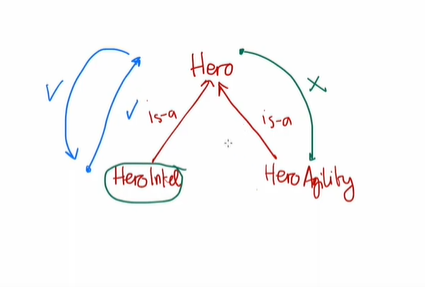 Hero
is-a
is-a
HeroIntel
HeroAgility